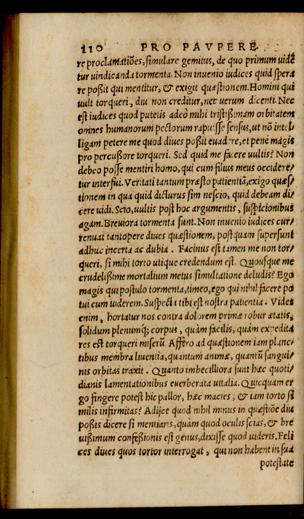 110 PRO PAVPERE
re proclamatiões, simulare gemitus, de quo primum uidẽ
tur uindicanda tormenta. Non inuenio iudices quid spera
re poßit qui mentitur, & exigit quæstionem. Homini qui
uult torqueri, diu non creditur, nec uerum dicenti. Nec
est iudices quod putetis adeò mihi tristißimam orbitatem
omnes humanorum pectorum rapuisse sensus, ut nō intel
ligam petere me quod diues poßit euadere, et penè magis
pro percussore torqueri. Sed quid me facere uultis? Non
debeo posse mentiri homo, qui cum filius meus occideretur
tur interfui. Veritati tantum præsto patientiā, exigo quæs
tionem in qua quid dicturus sim nescio, quid debeam di
cere uidi. Scio, uultis post hoc argumentis, suspicionibus
agam. Breuiora tormenta sunt. Non inuenio iudices cur
renuat tantopere diues quæstionem, post quam supersunt
adhuc incerta ac dubia. Facinus est tamen me non tor
queri, si mihi torto utique credendum est. Quousque me
crudelißime mortalium metus simulatione deludis? Ego
magis qui postulo tormenta, timeo, ego qui nihil facere po
tui cum uiderem. Suspecta tibi est nostra patientia. Vides
enim, hortatur nos contra dolorem prima robur ætatis,
solidum plenumq; corpus, quàm facilis, quàm expedita
res est torqueri miserū. Affero ad quæstionem iam planc
tibus membra liuentia, quantum animæ, quantū sangui
nis orbitas traxit. Quanto imbecilliora sunt hæc quoti
dianis lamentationibus euerberata uitalia. Quicquam er
go fingere potest hic pallor, hæc macies, & iam torto si
milis infirmitas? Adijce quod nihil minus in quæstiōe diu
poßis dicere si mentiaris, quàm quod oculis scias, & bre
uißimum confeßionis est genus, dixisse quod uideris. Feli
ces diues quos tortor interrogat, qui non habent in sua
potestate